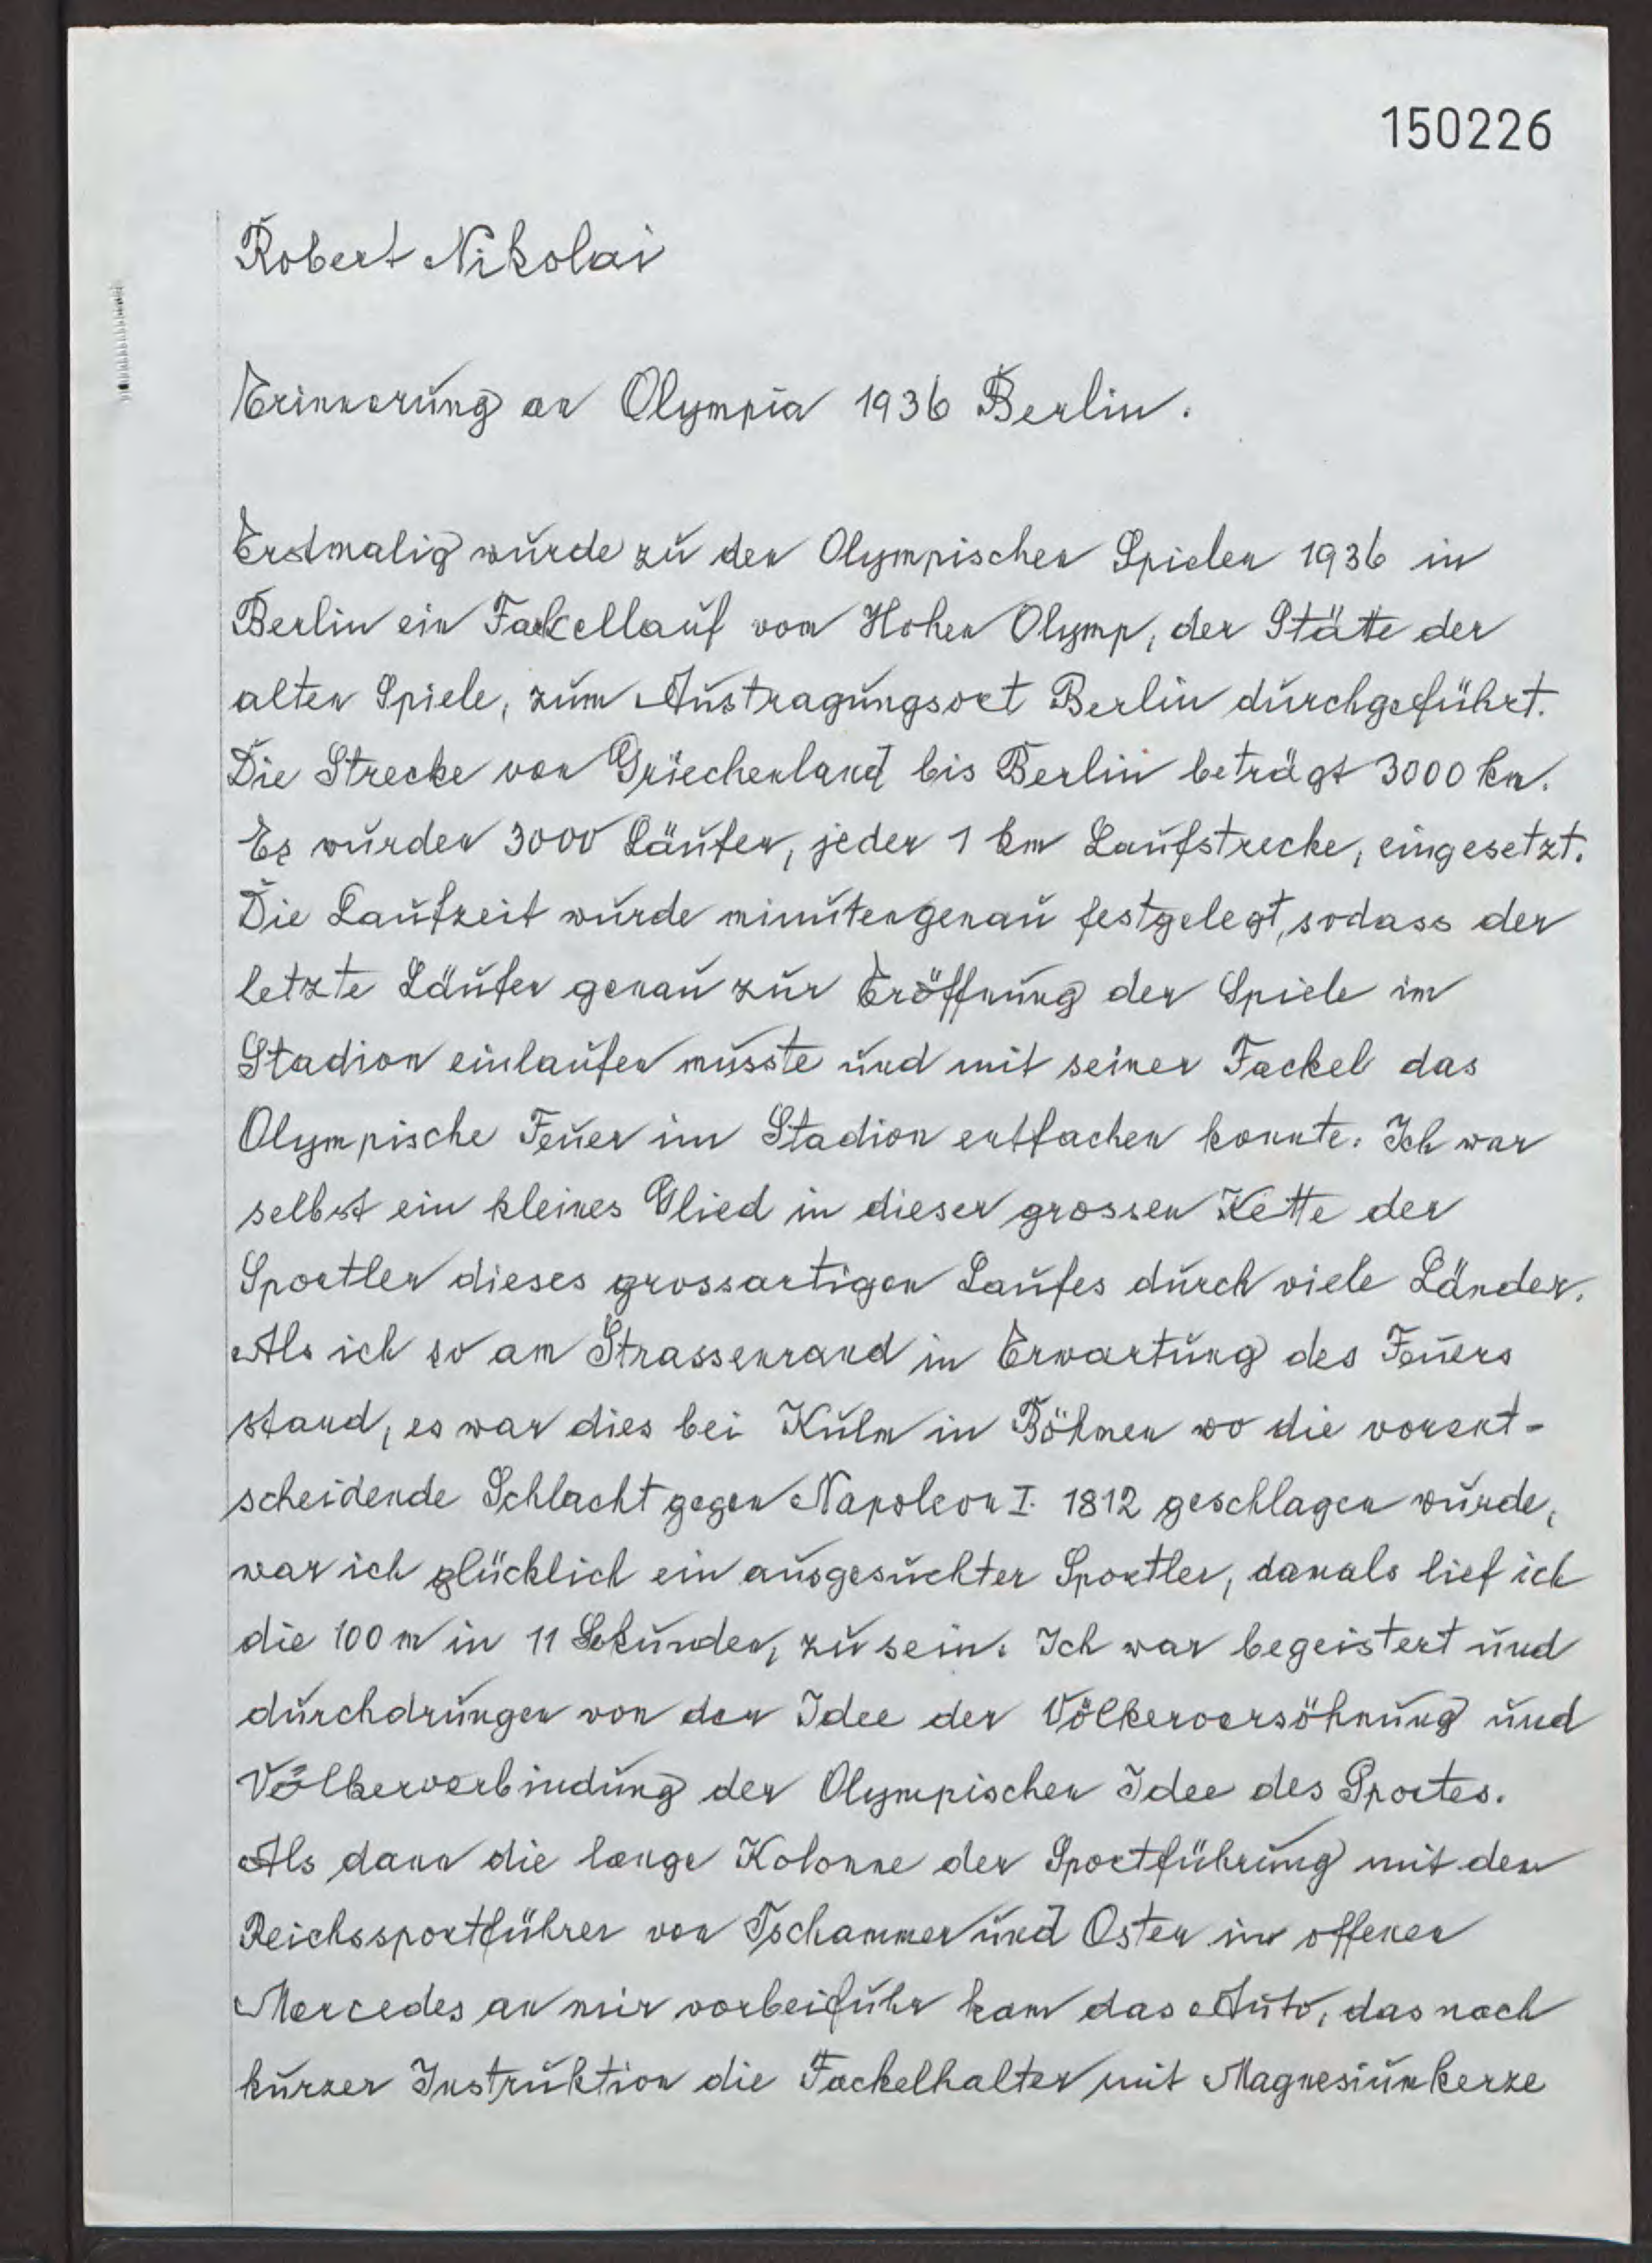 150226
Robert Nikolai
Erinnerung an Olympia 1936 Berlin.
Erstmalig wurde zu den Olympischen Spielen 1936 in
Berlin ein Fackellauf vom Hohen Olymp, der Stätte der
alten Spiele, zum Austragungsort Berlin durchgeführt.
Die Strecke von Griechenland bis Berlin beträgt 3000 km.
Es wurden 3000 Läufer, jeder 1 km Laufstrecke, eingesetzt.
Die Laufzeit wurde minutengenau festgelegt, sodass der
letzte Läufer genau zur Eröffnung der Spiele im
Stadion einlaufen musste und mit seiner Fackel das
Olympische Feuer im Stadion entfachen konnte. Ich war
selbst ein kleines Glied in dieser grossen Kette der
Sportler dieses grossartigen Laufes durch viele Länder.
Als ich so am Strassenrand in Erwartung des Feuers
stand, es war dies bei Kulm in Böhmen wo die vorent-
scheidende Schlacht gegen Napoleon I. 1812 geschlagen wurde,
war ich glücklich ein ausgesuchter Sportler, damals lief ich
die 100 m in 11 Sekunden, zu sein. Ich war begeistert und
durchdrungen von der Idee der Völkerversöhnung und
Völkerverbindung der Olympischen Idee des Sportes.
Als dann die lange Kolonne der Sportführung mit dem
Reichssportführer von Tschammer und Osten im offenen
Mercedes an mir vorbeifuhr kam das Auto, das nach
kurzer Instruktion die Fackelhalter mit Magnesiumkerze